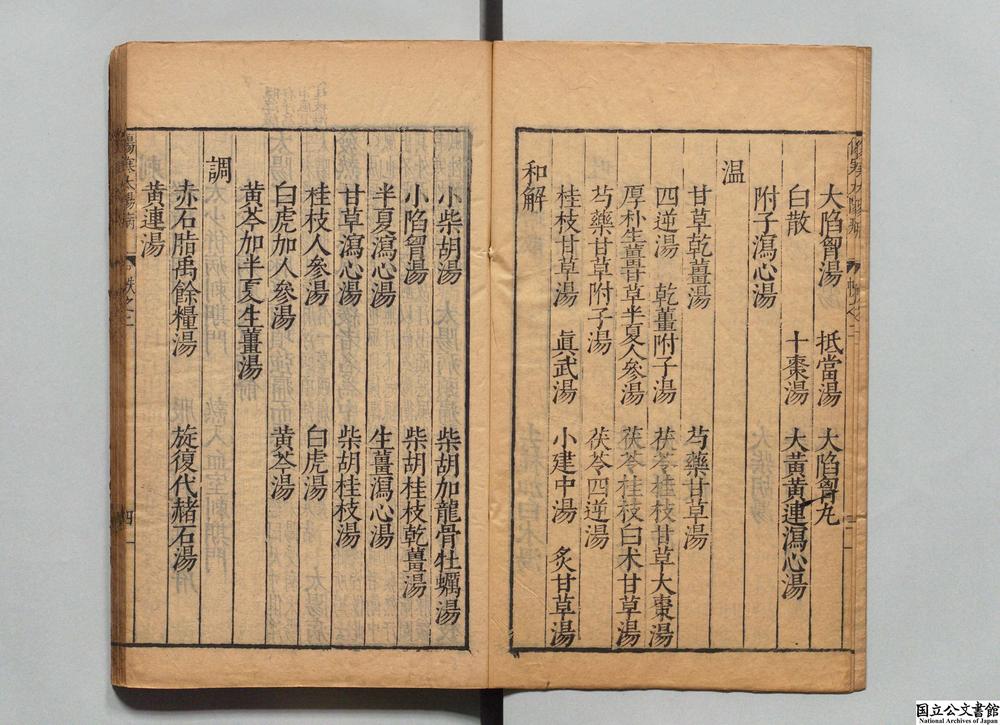 大陷胷湯 抵當湯 大陷胷丸
白散 十棗湯 大黄黄連瀉心湯
附子瀉心湯
温
甘草乾薑湯 芍藥甘草湯
四逆湯 乾薑附子湯 茯苓桂枝甘草大棗湯
厚朴生薑甘草半夏人參湯 茯苓桂枝白术甘草湯
芍藥甘草附子湯 茯苓四逆湯
桂枝甘草湯 眞武湯 小建中湯 炙甘草湯
和解
小柴胡湯 柴胡加龍骨牡蠣湯
小陷胷湯 柴胡桂枝乾薑湯
半夏瀉心湯 生薑瀉心湯
甘草瀉心湯 柴胡桂枝湯
桂枝人參湯 白虎湯
白虎加人參湯 黄芩湯
黄芩加半夏生薑湯
調
赤石脂禹餘糧湯 旋復代赭石湯
黄連湯
傷寒太陽病
四
国立公文書館
National Archives of Japan